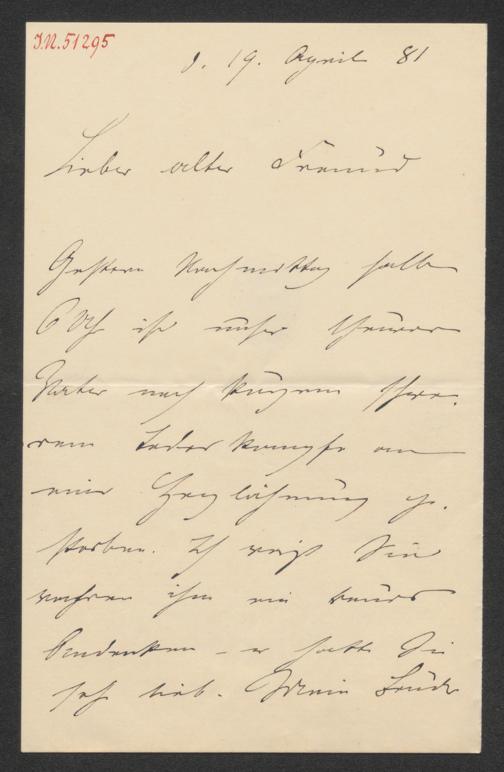 I.N. 51295
d. 19. April 81
Lieber alter Freund
Gestern Nachmittag halb
6 Uhr ist unser theurer
Vater nach kurzem schwe-
rem Todeskampfe an
einer Herzlähmung ge-
storben. Ich weiß Sie
wahren ihm ein treues
Andenken – er hatte Sie
sehr lieb. Mein Bruder